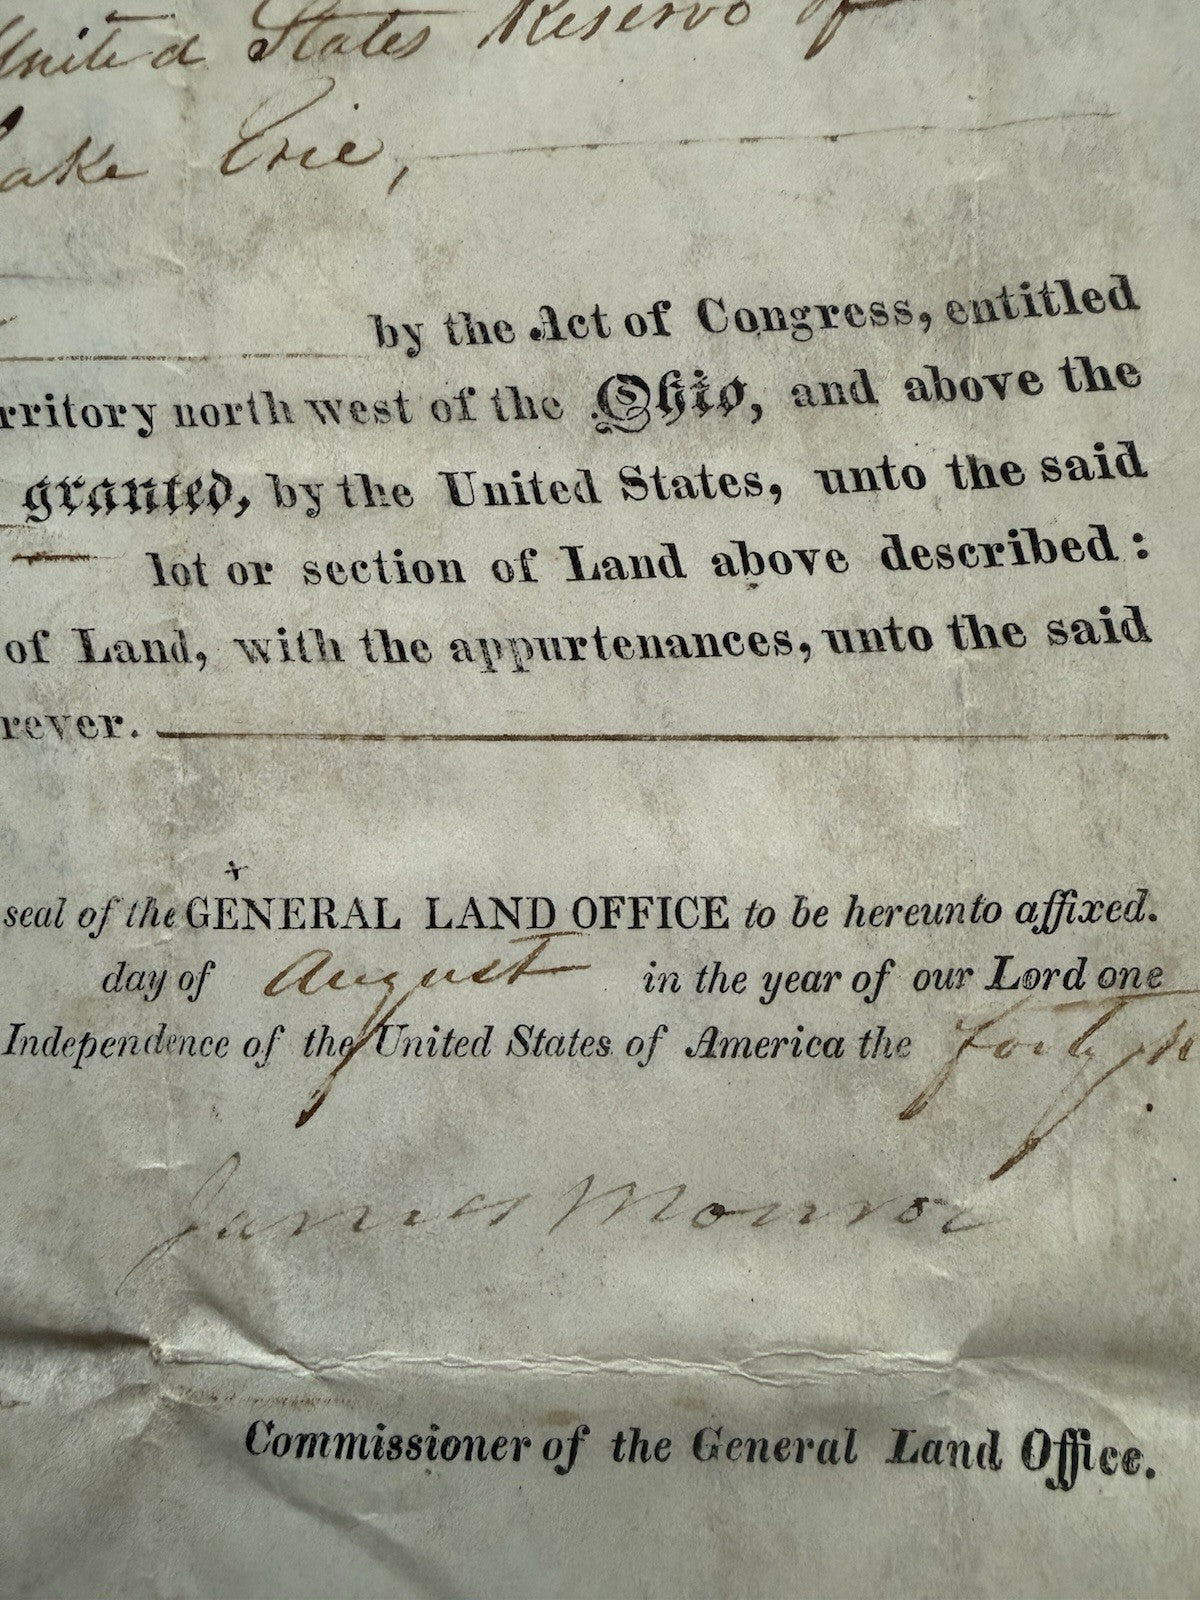 United States Reserve of
Lake Erie,
by the Act of Congress, entitled
rritory north west of the Ohio, and above the
granted, by the United States, unto the said
lot or section of Land above described:
of Land, with the appurtenances, unto the said
rever.
seal of the GENERAL LAND OFFICE to be hereunto affixed.
day of August in the year of our Lord one
Independence of the United States of America the forty
James Monroe
Commissioner of the General Land Office.